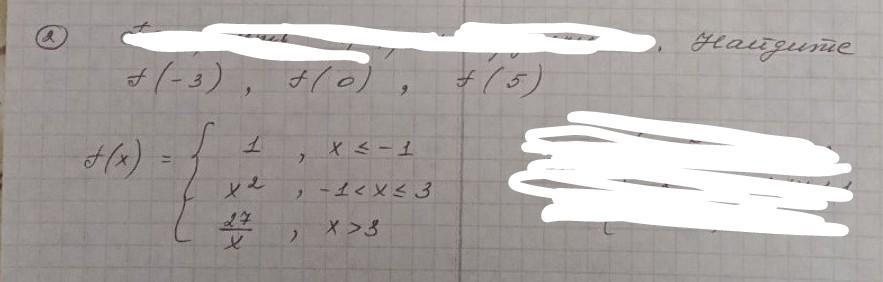 ② . Найдите
f(-3), f(0), f(5)
f(x) = { 1 , x ≤ -1
x² , -1 < x ≤ 3
27/x , x > 3